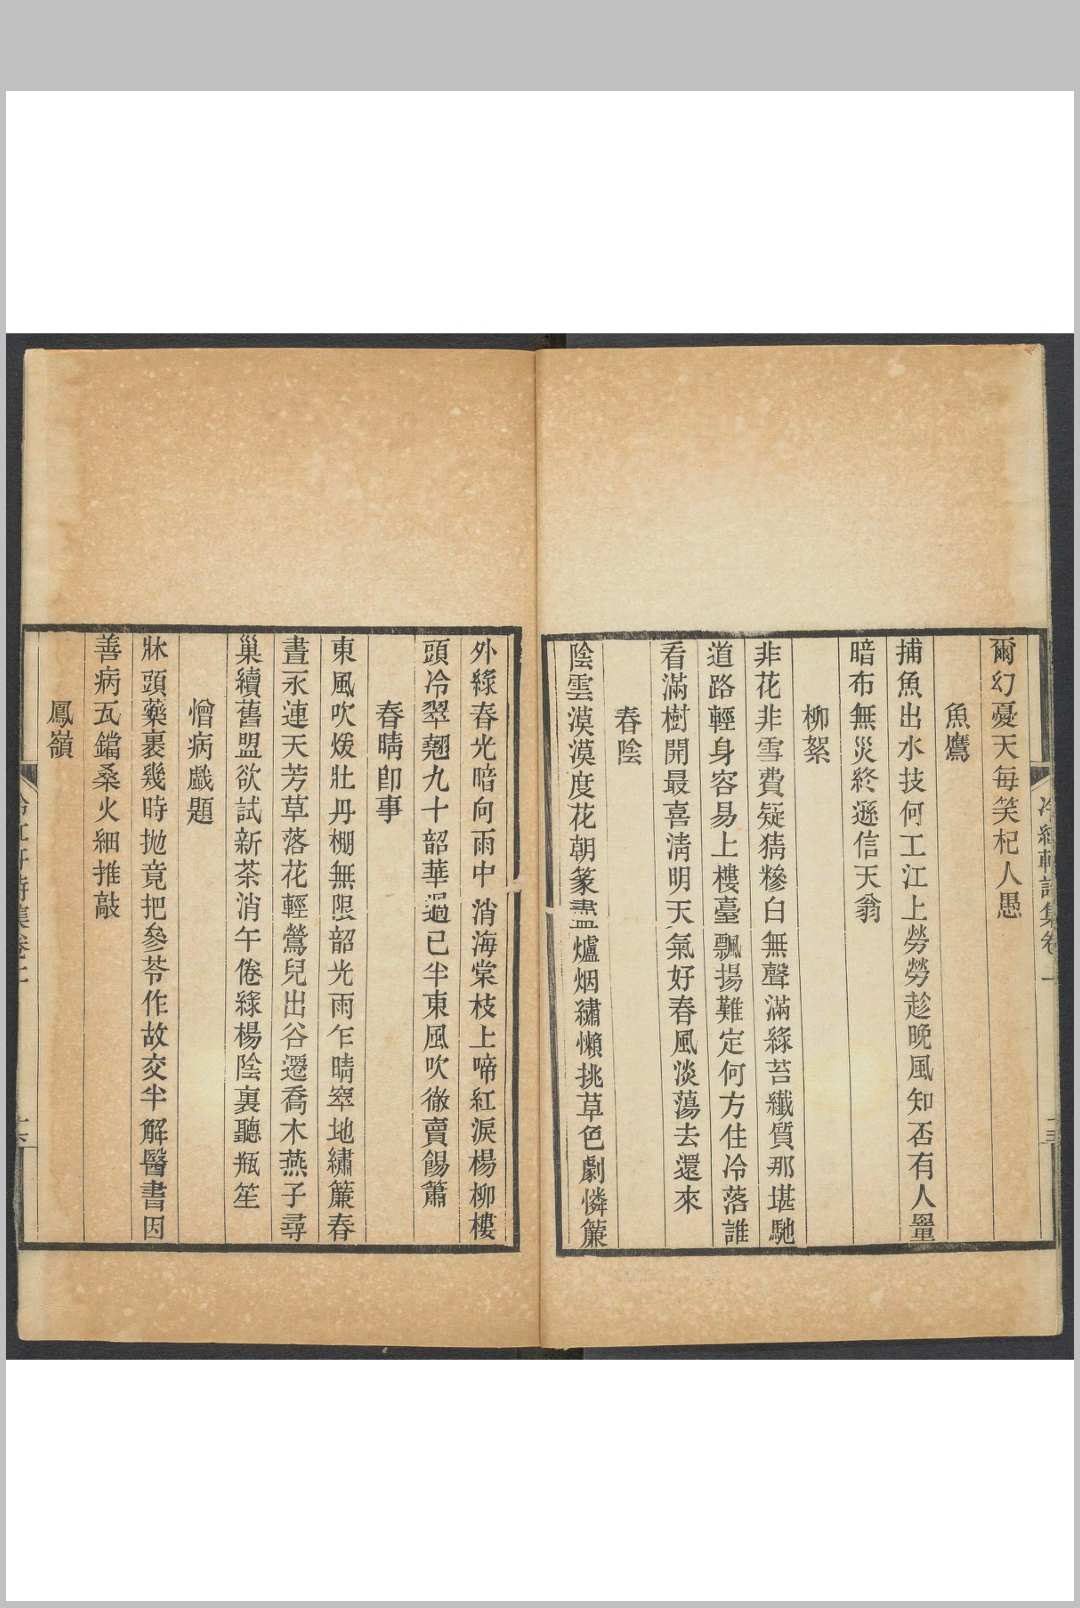 爾幻憂天每笑杞人愚
魚鷹
捕魚出水技何工江上勞勞趁晚風知否有人罿
暗布無災終遜信天翁
柳絮
非花非雪費疑猜糝白無聲滿綠苔纖質那堪馳
道路輕身容易上樓臺飄揚難定何方住冷落誰
看滿樹開最喜淸明天氣好春風淡蕩去還來
春陰
陰雲漠漠度花朝篆盡爐烟繡懶挑草色劇憐簾
外綠春光暗向雨中消海棠枝上啼紅淚楊柳樓
頭冷翠翹九十韶華過已半東風吹徹賣餳簫
春晴卽事
東風吹煖牡丹棚無限韶光雨乍晴窣地繡簾春
晝永連天芳草落花輕鶯兒出谷遷喬木燕子尋
巢續舊盟欲試新茶消午倦綠楊陰裏聽瓶笙
憎病戲題
牀頭藥裹幾時拋竟把參苓作故交半解醫書因
善病瓦鐺桑火細推敲
鳳嶺